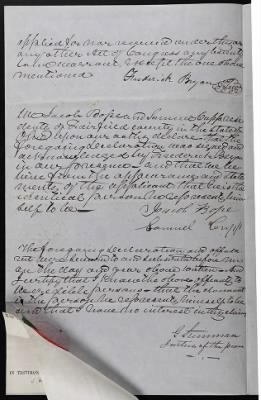 applied for nor received under this or
any other Act of Congress any bounty
land warrant except the one above
mentioned
Frederick Bryan
We Jacob Bope and Samuel resi
dents of Fairfield county in the State of
Ohio upon our oaths declare that the
foregoing declaration was signed and
acknowledged by Frederick Bryan
in our presence and that we be
lieve from the appearance and state
ments of the applicant that he is the
identical person he represents him
self to be
Jacob Bope
Samuel
The foregoing declaration and affidavit
were sworn to and subscribed before me
on the day and year above written And
I certify that I know the above affiants to
be credible persons that the claimant
is the person he represents himself to be
and that I have no interest in this claim
Justice of the peace
IN TESTIMON